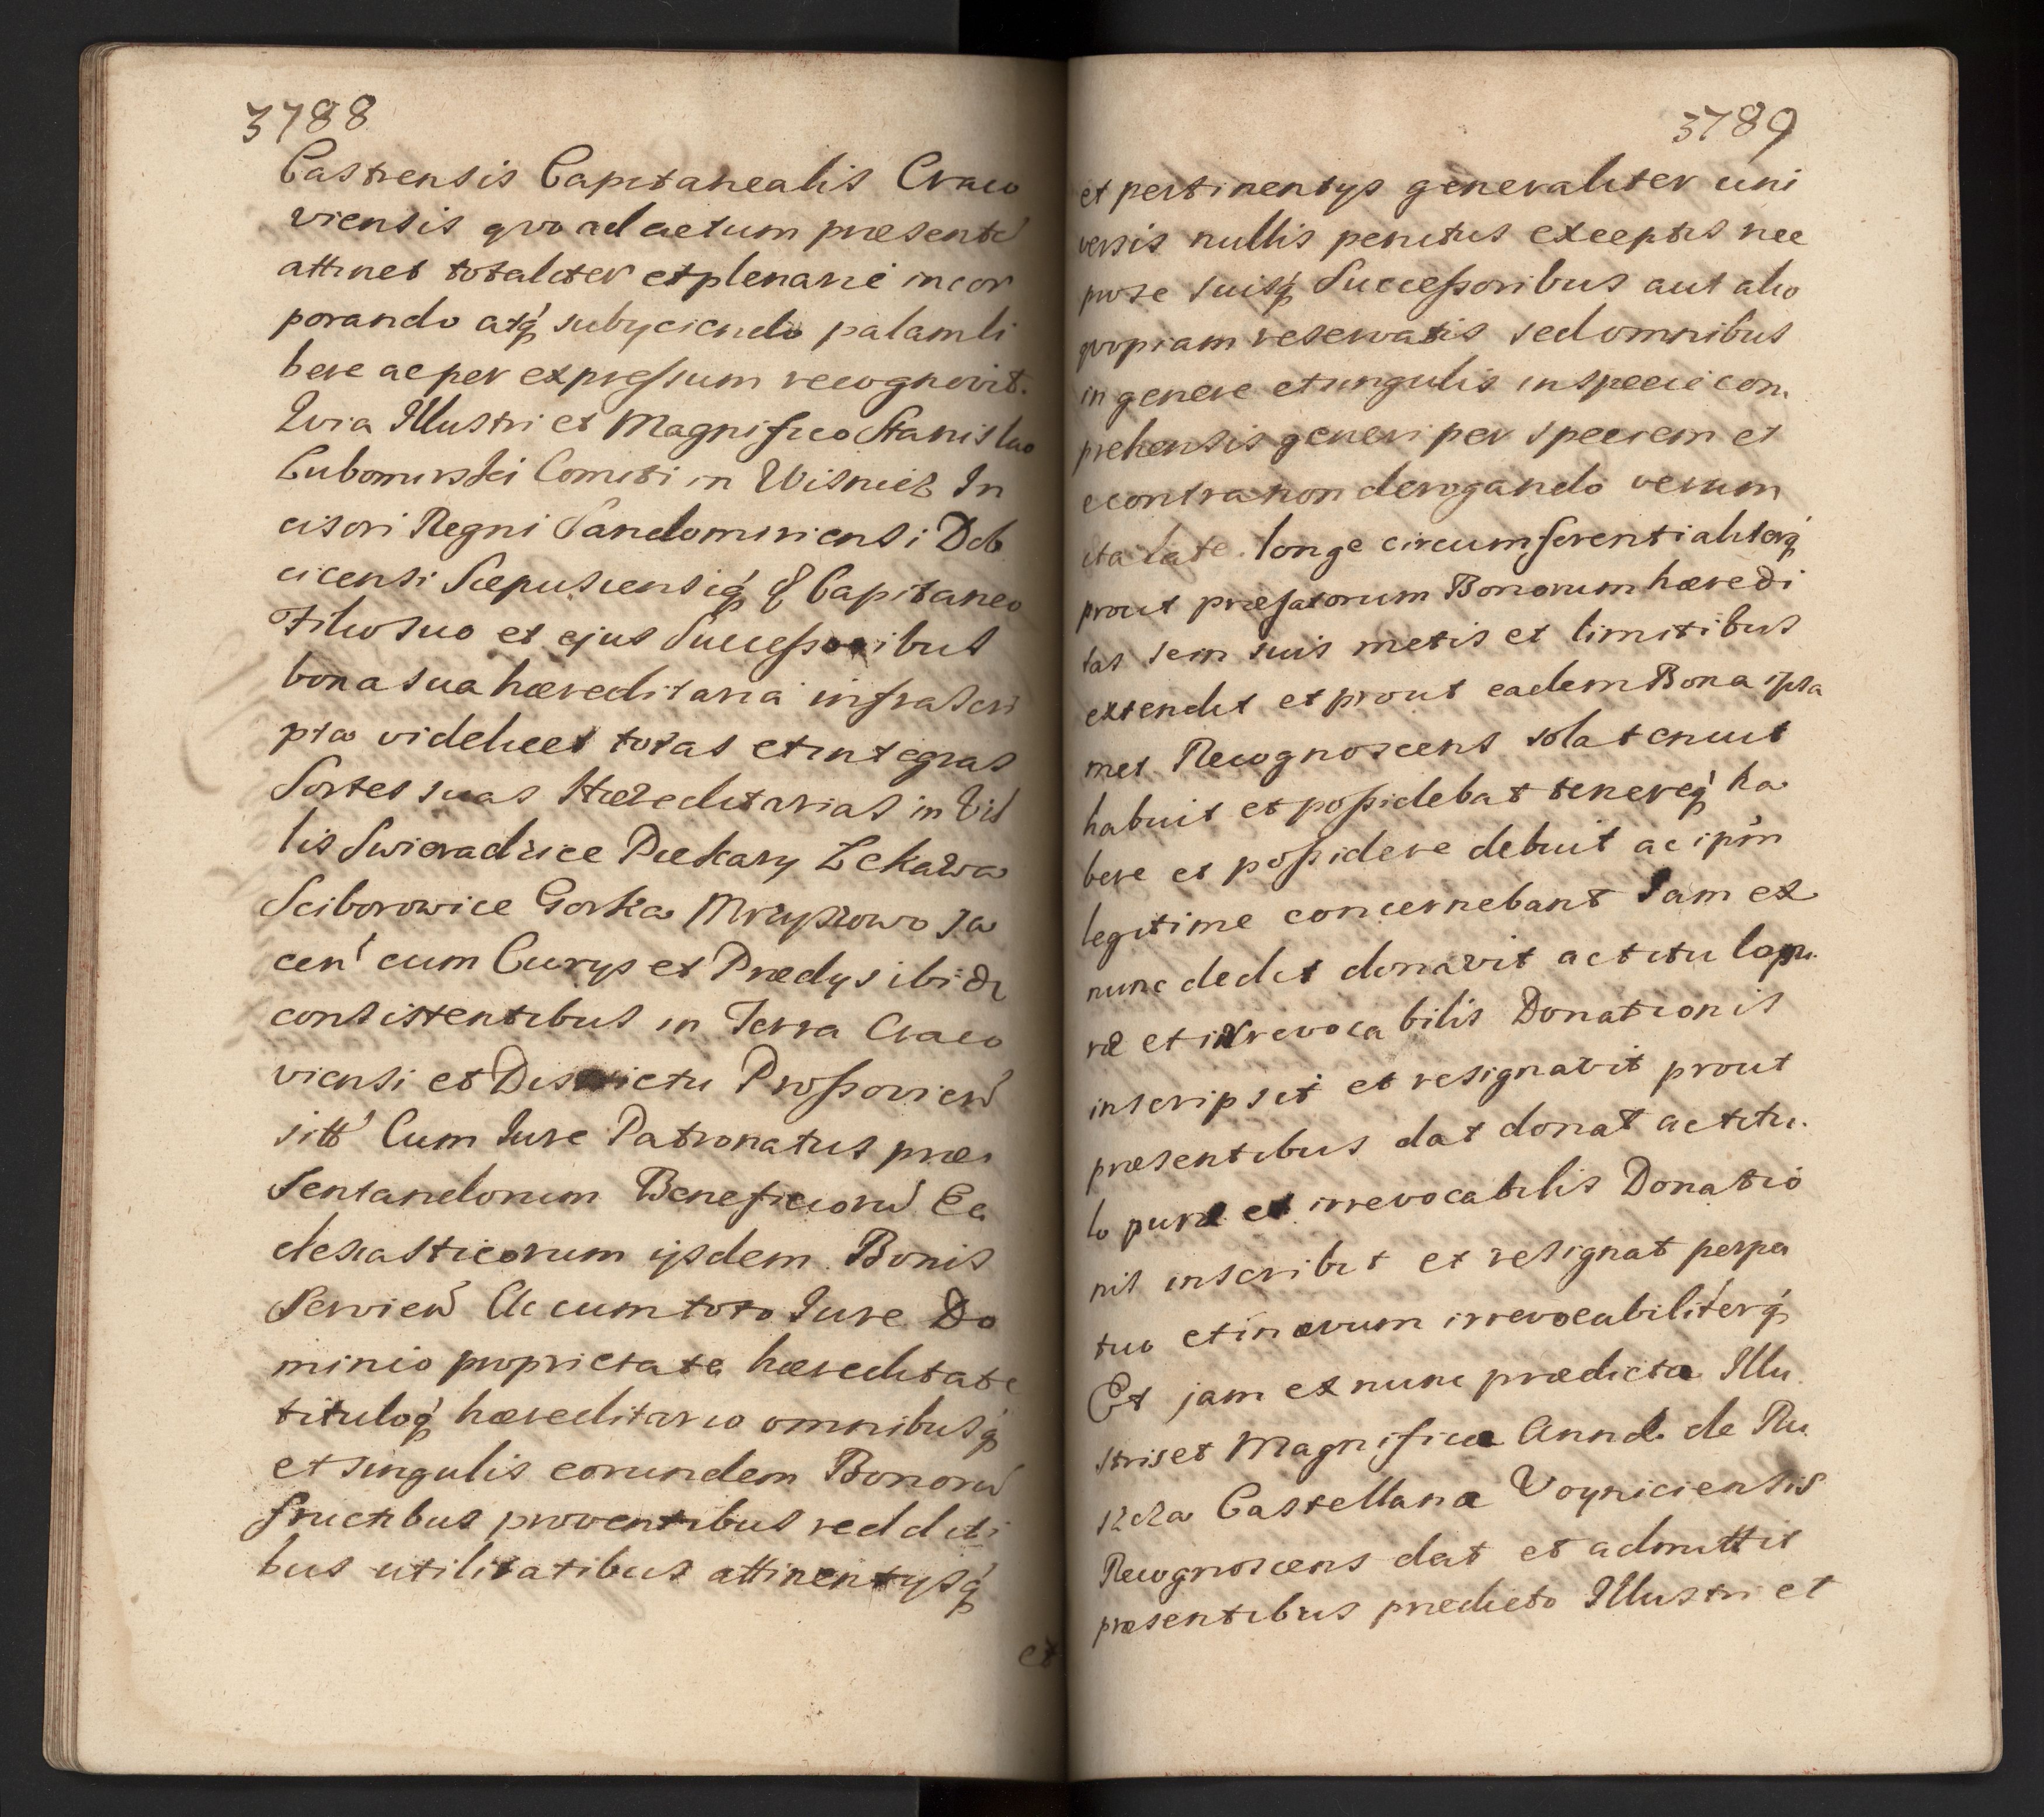 3788
Castrensis Capitanealis Craco
viensis quo ad actum praesente͂
attinet totaliter et plenarie incor
porando atq́ subyciendo palam li
bere ac per expressum recognovit.
Quia Illustri et Magnifico Stanislao
Lubomirski Comiti in Wisnicz In
cisori Regni Sandomiriensi Dob
cicensi Scepusiensiq́ & Capitaneo
Filio suo et ejus Successoribus
bona sua haereditaria infrascri
pta videlicet totas et integras
Sortes suas Haereditarias in Vil
lis Swieradzice Piekary Lekawa
Sciborowice Gorka Mrzyszowo Ja
cen͂ cum Curys et Praedys ibide
consistentibus in Terra Craco
viensi et Districtu Prossovien͂
sitt͂ Cum Jure Patronatus prae
sentandorum Beneficioru͂ Ec
clesiasticorum ysdem Bonis
Servien͂ Ac cum toto Jure Do
minio proprietate haereditate
tituloq́ haereditario omnibusq́
et singulis eorundem Bonoru͂
fructibus proventibus redditi
bus utilitatibus attinentysq́
et
3789
et pertinentys generaliter uni
versis nullis penitus exceptis nec
pro se suisq́ Successoribus aut alio
quopiam reservatis sed omnibus
in genere et singulis in specie com
prehensis generi per speciem et
econtra non derogando verum
ita late longe circumferentialiterq́
prout praefatorum Bonorum haeredi
tas sem suis metis et limitibus
extendit et prout eadem Bona ipsa
met Recognoscens sola tenuit
habuit et possidebat tenereq́ ha
bere et possidere debuit ac ipm͂
legitime concernebant Jam ex
nunc dedit donavit ac titulo pu
rae et irrevocabilis Donationis
inscripsit et resignavit prout
praesentibus dat donat ac titu
lo purae et irrevocabilis Donatio
nis inscribit et resignat perpe
tuo et in aevum irrevocabiliterq́
Et jam ex nunc praedicta Illu
stris et Magnifica Anna de Ru
szcza Castellana Voyniciensis
Recognoscens dat et admittit
praesentibus praedicto Illustri et